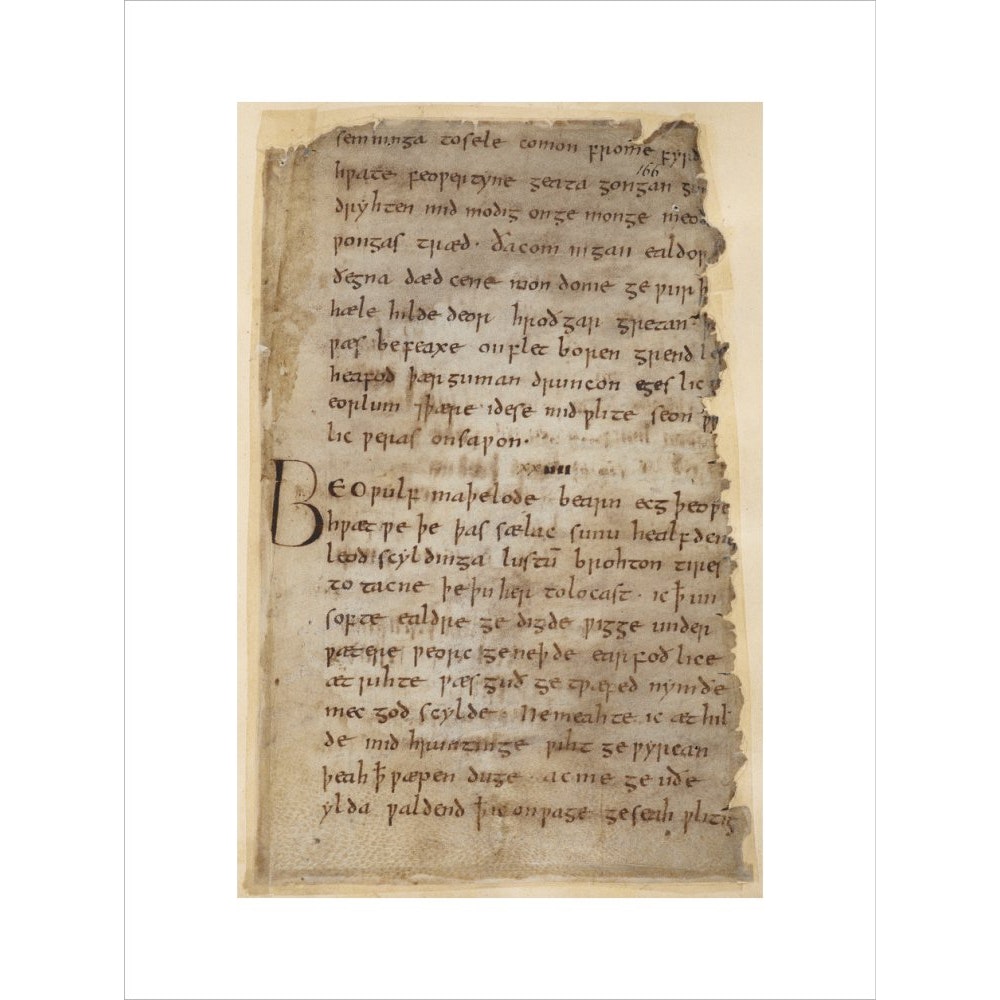 semninga tosele comon frome fyrd
166
hƿate feoƿertyne geata gongan gu
dryhten mid modig onge monge meod
ƿongas træd · ða com in gan ealdor
ðegna dæd cene mon dome ge ƿurþ
hæle hilde deor hroðgar gretan · þ
ƿæs be feaxe on flet boren grend les
heafod þær guman druncon egeslic
eorlum ⁊ þære idese mid ƿlite seon ƿr
lic ƿeras on saƿon ·
xxiiii
BEOƿulf maþelode bearn ecg þeoƿe
hƿæt ƿe þe þas sælac sunu healfdenes
leod scyldinga lustū brohton tires
to tacne þe þu her tolocast · ic ꝥ un
softe ealdre ge digde ƿigge under
ƿætere ƿeorc geneþde earfoð lice
æt rihte ƿæs guð ge tƿæfed nymðe
mec god scylde · Ne meahte ic æt hil
de mid hruntinge ƿiht ge ƿyrcan
þeah ꝥ ƿæpen duge · ac me ge uðe
ylda ƿaldend ꝥ ic on ƿage geseah ƿlitig